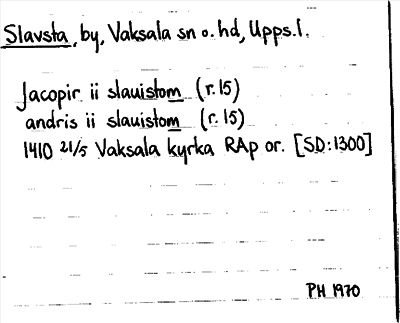 Slavsta, by, Vaksala sn o. hd, Upps.l.
Jacopir ii slauistom (r. 15)
andris ii slauistom (r. 15)
1410 21/5 Vaksala kyrka RAp or. [SD:1300]
PH 1970